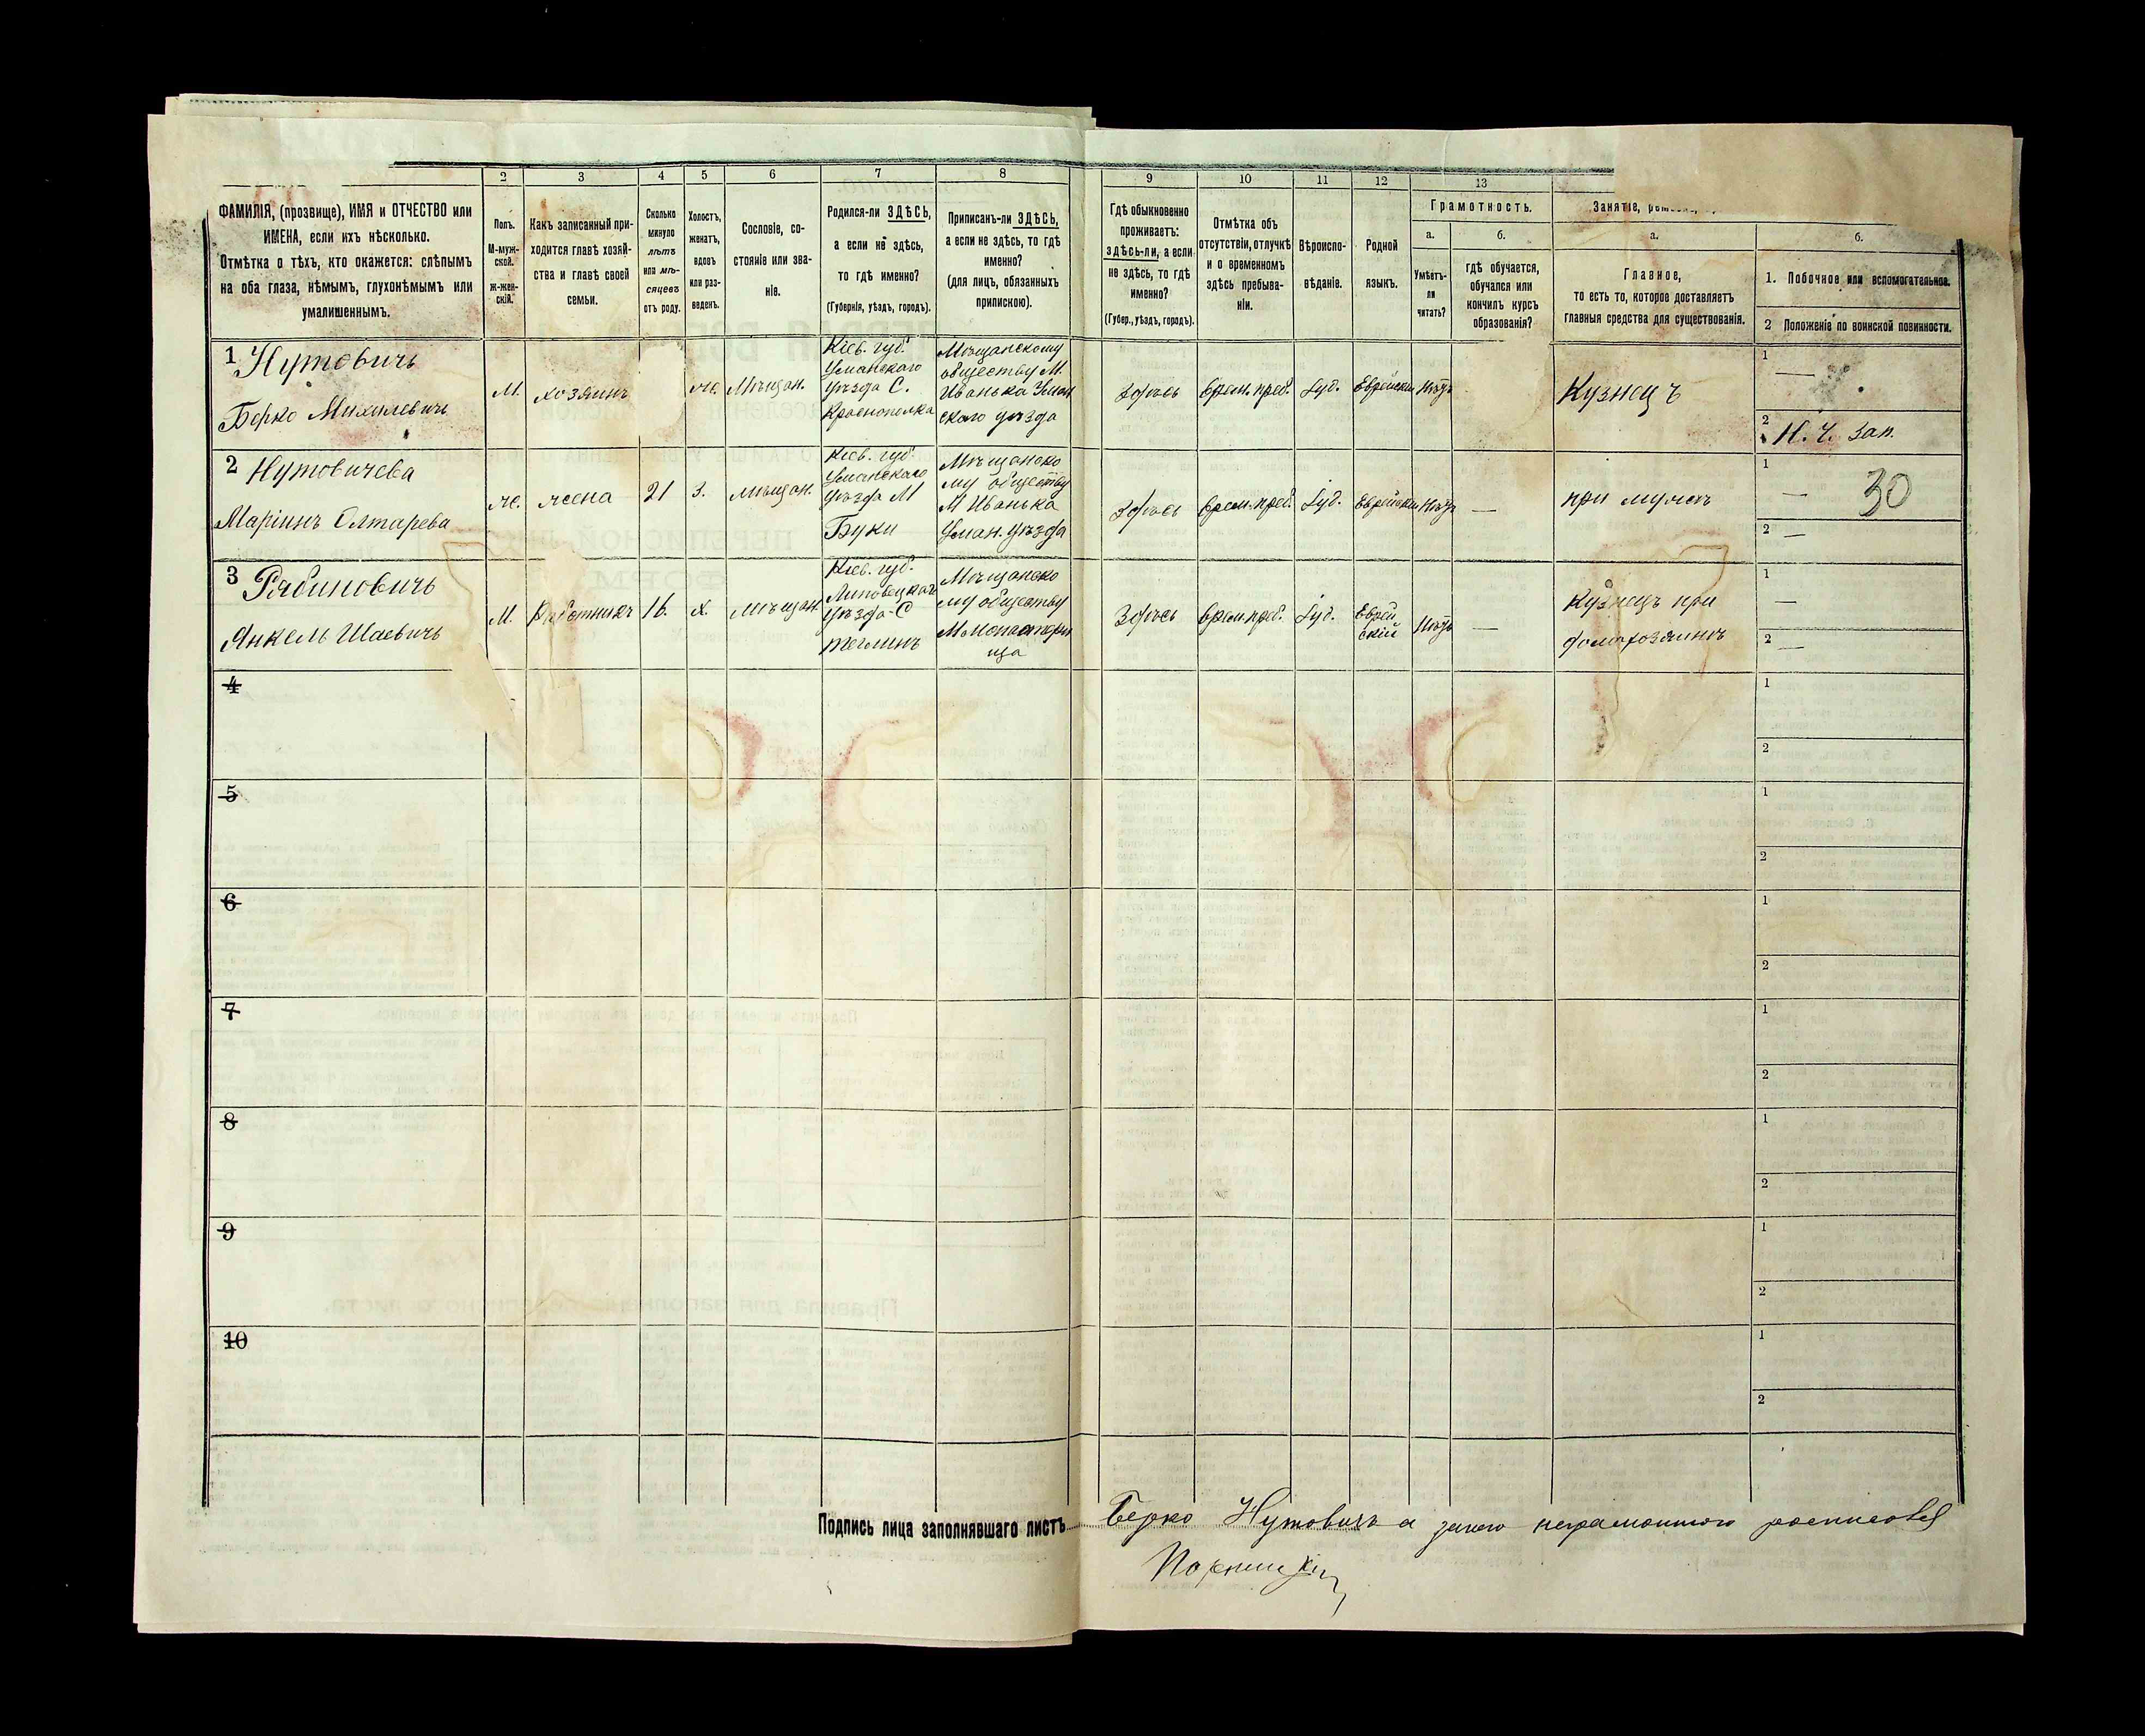 2
3
4
5
6
7
8
9
10
11
12
13
ФАМИЛІЯ, (прозвище), ИМЯ и ОТЧЕСТВО или
ИМЕНА, если ихъ нѣсколько.
Отмѣтка о тѣхъ, кто окажется: слѣпымъ
на оба глаза, нѣмымъ, глухонѣмымъ или
умалишеннымъ.
Полъ.
М-муж-
ской.
ж-жен-
скій.
Какъ записанный при-
ходится главѣ хозяй-
ства и главѣ своей
семьи.
Сколько
минуло
лѣтъ
или мѣ-
сяцевъ
отъ роду.
Холостъ,
женатъ,
вдовъ
или раз-
веденъ.
Сословіе, со-
стояніе или зва-
ніе.
Родился-ли ЗДѢСЬ,
а если не здѣсь,
то гдѣ именно?
(Губернія, уѣздъ, городъ).
Приписанъ-ли ЗДѢСЬ,
а если не здѣсь, то гдѣ
именно?
(для лицъ, обязанныхъ
припискою).
Гдѣ обыкновенно
проживаетъ:
здѣсь-ли, а если
не здѣсь, то гдѣ
именно?
(Губер., уѣздъ, городъ).
Отмѣтка объ
отсутствіи, отлучкѣ
и о временномъ
здѣсь пребыва-
ніи.
Вѣроиспо-
вѣданіе.
Родной
языкъ.
Грамотность.
а.
Умѣетъ-
ли
читать?
б.
гдѣ обучается,
обучался или
кончилъ курсъ
образованія?
Занятіе,
а.
Главное,
то есть то, которое доставляетъ
главныя средства для существованія.
б.
1. Побочное или вспомогательное.
2 Положеніе по воинской повинности.
1 Нутовичъ
Берко Михилевичъ
М.
хозяинъ
же.
Мѣщан.
Кіев. губ.
Уманскаго
уѣзда С.
Краснополка
Мѣщанскому
обществу М.
Иванька Уман
скаго уѣзда
Здѣсь
врем. преб.
Іуд.
Еврейскій
Нѣтъ
Кузнецъ
1
—
2
Н. Ч. зап.
2 Нутовичева
Маріинъ Олтарева
же.
жена
21
З.
мѣщан.
Кіев. губ.
Уманскаго
уѣзда М
Буки
Мѣщанско
му обществу
М Иванька
Уман. уѣзда
Здѣсь
врем. преб.
Іуд.
Еврейскій
Нѣтъ
—
при мужѣ
1
—
30
2
—
3 Рабиновичъ
Янкель Шаевичъ
М.
Работникъ
16.
х.
мѣщан.
Кіев. губ.
Липовецкаго
уѣзда С
теглинъ
Мѣщанско
му обществу
М Монастыри
ща
Здѣсь
врем. преб.
Іуд.
Еврей
скій
Нѣтъ
—
Кузнецъ при
домохозяинѣ
1
—
2
—
4
1
2
5
1
2
6
1
2
7
1
2
8
1
2
9
1
2
10
1
2
Подпись лица заполнявшаго листъ Берко Нутовичъ а за него неграмотного росписался